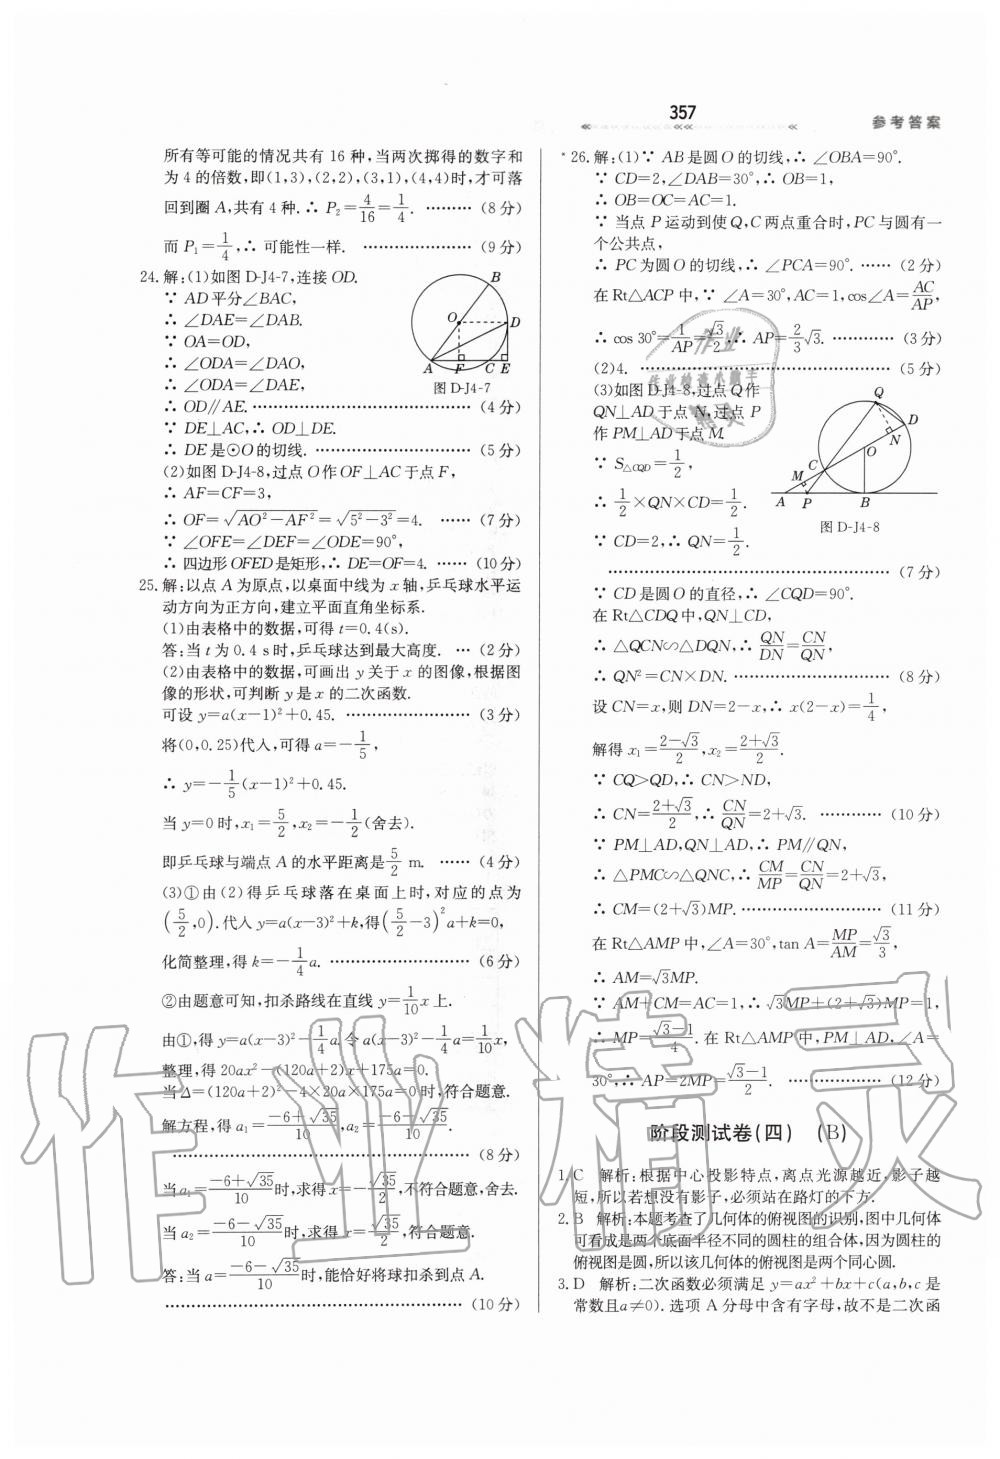 357
参考答案
所有等可能的情况共有 16 种,当两次掷得的数字和
为 4 的倍数,即(1,3),(2,2),(3,1),(4,4)时,才可落
回到圈 A,共有 4 种.∴ P₂=4/16=1/4. ……… (8 分)
而 P₁=1/4,∴ 可能性一样. ………………… (9 分)
24. 解:(1)如图 D-J4-7,连接 OD.
∵ AD 平分∠BAC,
∴ ∠DAE=∠DAB.
∵ OA=OD,
∴ ∠ODA=∠DAO,
∴ ∠ODA=∠DAE,
∴ OD∥AE. ……………………………… (4 分)
∵ DE⊥AC,∴ OD⊥DE.
∴ DE 是⊙O 的切线. ……………………… (5 分)
B
O
D
A F C E
图 D-J4-7
(2)如图 D-J4-8,过点 O 作 OF⊥AC 于点 F,
∴ AF=CF=3,
∴ OF=√(AO²-AF²)=√(5²-3²)=4. …… (7 分)
∵ ∠OFE=∠DEF=∠ODE=90°,
∴ 四边形 OFED 是矩形,∴ DE=OF=4. …… (10 分)
25. 解:以点 A 为原点,以桌面中线为 x 轴,乒乓球水平运
动方向为正方向,建立平面直角坐标系.
(1)由表格中的数据,可得 t=0.4(s).
答:当 t 为 0.4 s 时,乒乓球达到最大高度. … (2 分)
(2)由表格中的数据,可画出 y 关于 x 的图像,根据图
像的形状,可判断 y 是 x 的二次函数.
可设 y=a(x-1)²+0.45. …………………… (3 分)
将(0,0.25)代入,可得 a=-1/5,
∴ y=-1/5(x-1)²+0.45.
当 y=0 时,x₁=5/2,x₂=-1/2(舍去).
即乒乓球与端点 A 的水平距离是5/2 m. …… (4 分)
(3)①由(2)得乒乓球落在桌面上时,对应的点为
(5/2,0).代入 y=a(x-3)²+k,得(5/2-3)²a+k=0,
化简整理,得 k=-1/4a. …………………… (6 分)
②由题意可知,扣杀路线在直线 y=1/10x 上.
由①,得 y=a(x-3)²-1/4a,令 a(x-3)²-1/4a=1/10x,
整理,得 20ax²-(120a+2)x+175a=0.
当Δ=(120a+2)²-4×20a×175a=0 时,符合题意.
解方程,得 a₁=(-6+√35)/10,a₂=(-6-√35)/10.
……………………………………………… (8 分)
当 a₁=(-6+√35)/10时,求得 x=-√35/2,不符合题意,舍去.
当 a₂=(-6-√35)/10时,求得 x=√35/2,符合题意.
答:当 a=(-6-√35)/10时,能恰好将球扣杀到点 A.
……………………………………………… (10 分)
*26. 解:(1)∵ AB 是圆 O 的切线,∴ ∠OBA=90°.
∵ CD=2,∠DAB=30°,∴ OB=1,
∴ OB=OC=AC=1.
∵ 当点 P 运动到使 Q,C 两点重合时,PC 与圆有一
个公共点,
∴ PC 为圆 O 的切线,∴ ∠PCA=90°. …… (2 分)
在 Rt△ACP 中,∵ ∠A=30°,AC=1,cos∠A=AC/AP,
∴ cos 30°=1/AP=√3/2,∴ AP=2/3√3. ………… (3 分)
(2)4. ……………………………………… (5 分)
(3)如图 D-J4-8,过点 Q 作
QN⊥AD 于点 N,过点 P
作 PM⊥AD 于点 M.
∵ S△CQD=1/2,
∴ 1/2×QN×CD=1/2.
∵ CD=2,∴ QN=1/2.
Q
D
N
O
C
M
A P B
图 D-J4-8
……………………………………………… (7 分)
∵ CD 是圆 O 的直径,∴ ∠CQD=90°.
在 Rt△CDQ 中,QN⊥CD,
∴ △QCN∽△DQN,∴ QN/DN=CN/QN,
∴ QN²=CN×DN. ………………………… (8 分)
设 CN=x,则 DN=2-x,∴ x(2-x)=1/4,
解得 x₁=(2-√3)/2,x₂=(2+√3)/2.
∵ CQ>QD,∴ CN>ND,
∴ CN=(2+√3)/2,∴ CN/QN=2+√3. ………… (10 分)
∵ PM⊥AD,QN⊥AD,∴ PM∥QN,
∴ △PMC∽△QNC,∴ CM/MP=CN/QN=2+√3,
∴ CM=(2+√3)MP. ……………………… (11 分)
在 Rt△AMP 中,∠A=30°,tan A=MP/AM=√3/3,
∴ AM=√3MP.
∵ AM+CM=AC=1,∴ √3MP+(2+√3)MP=1,
∴ MP=(√3-1)/4. 在 Rt△AMP 中,PM⊥AD,∠A=
30°,∴ AP=2MP=(√3-1)/2. ……………… (12 分)
阶段测试卷(四) (B)
1. C 解析:根据中心投影特点,离点光源越近,影子越
短,所以若想没有影子,必须站在路灯的下方.
2. B 解析:本题考查了几何体的俯视图的识别,图中几何体
可看成是两个底面半径不同的圆柱的组合体,因为圆柱的
俯视图是圆,所以该几何体的俯视图是两个同心圆.
3. D 解析:二次函数必须满足 y=ax²+bx+c(a,b,c 是
常数且a≠0). 选项 A 分母中含有字母,故不是二次函
作业精灵